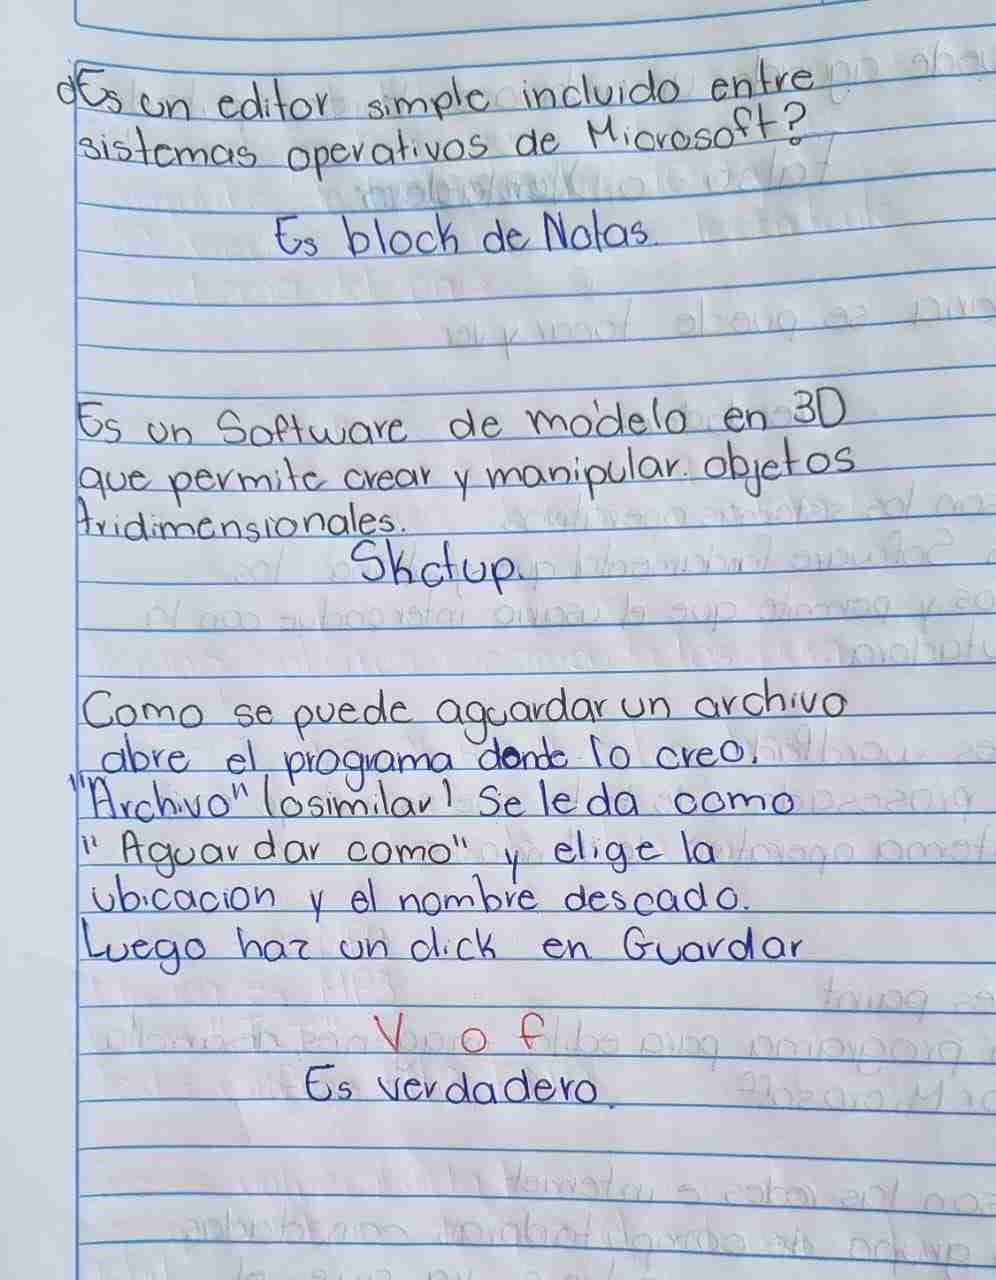 ¿Es un editor simple incluido entre
sistemas operativos de Microsoft?
Es block de Notas.
Es un Software de modelo en 3D
que permite crear y manipular objetos
tridimensionales.
Sketup.
Como se puede aguardar un archivo
abre el programa donde lo creo.
"Archivo" (osimilar) Se le da como
"Aguardar como" y elige la
ubicacion y el nombre deseado.
Luego haz un click en Guardar
V o f
Es verdadero.